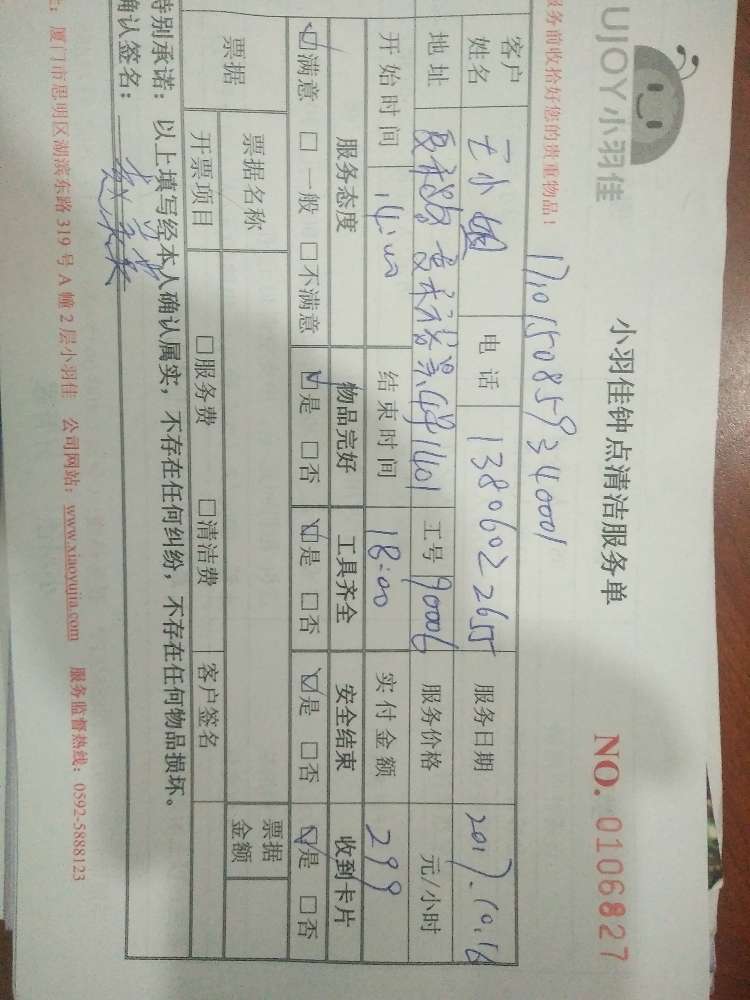 UJOY小羽佳
小羽佳钟点清洁服务单
NO. 0106827
服务前收拾好您的贵重物品!
1710150859340001
客户姓名 王小姐 电话 13806022655 服务日期 2017.10.16
地址 工号 90006 服务价格 元/小时
开始时间 14:00 结束时间 18:00 实付金额 299
服务态度 物品完好 工具齐全 安全结束 收到卡片
☑满意 □一般 □不满意 ☑是 □否 ☑是 □否 ☑是 □否 ☑是 □否
票据 票据名称 票据金额
开票项目 □服务费 □清洁费 客户签名
特别承诺:以上填写经本人确认属实,不存在任何纠纷,不存在任何物品损坏。
确认签名:
厦门市思明区湖滨东路319号A幢2层小羽佳 公司网站:www.xiaoyujia.com 服务监督热线:0592-5888123